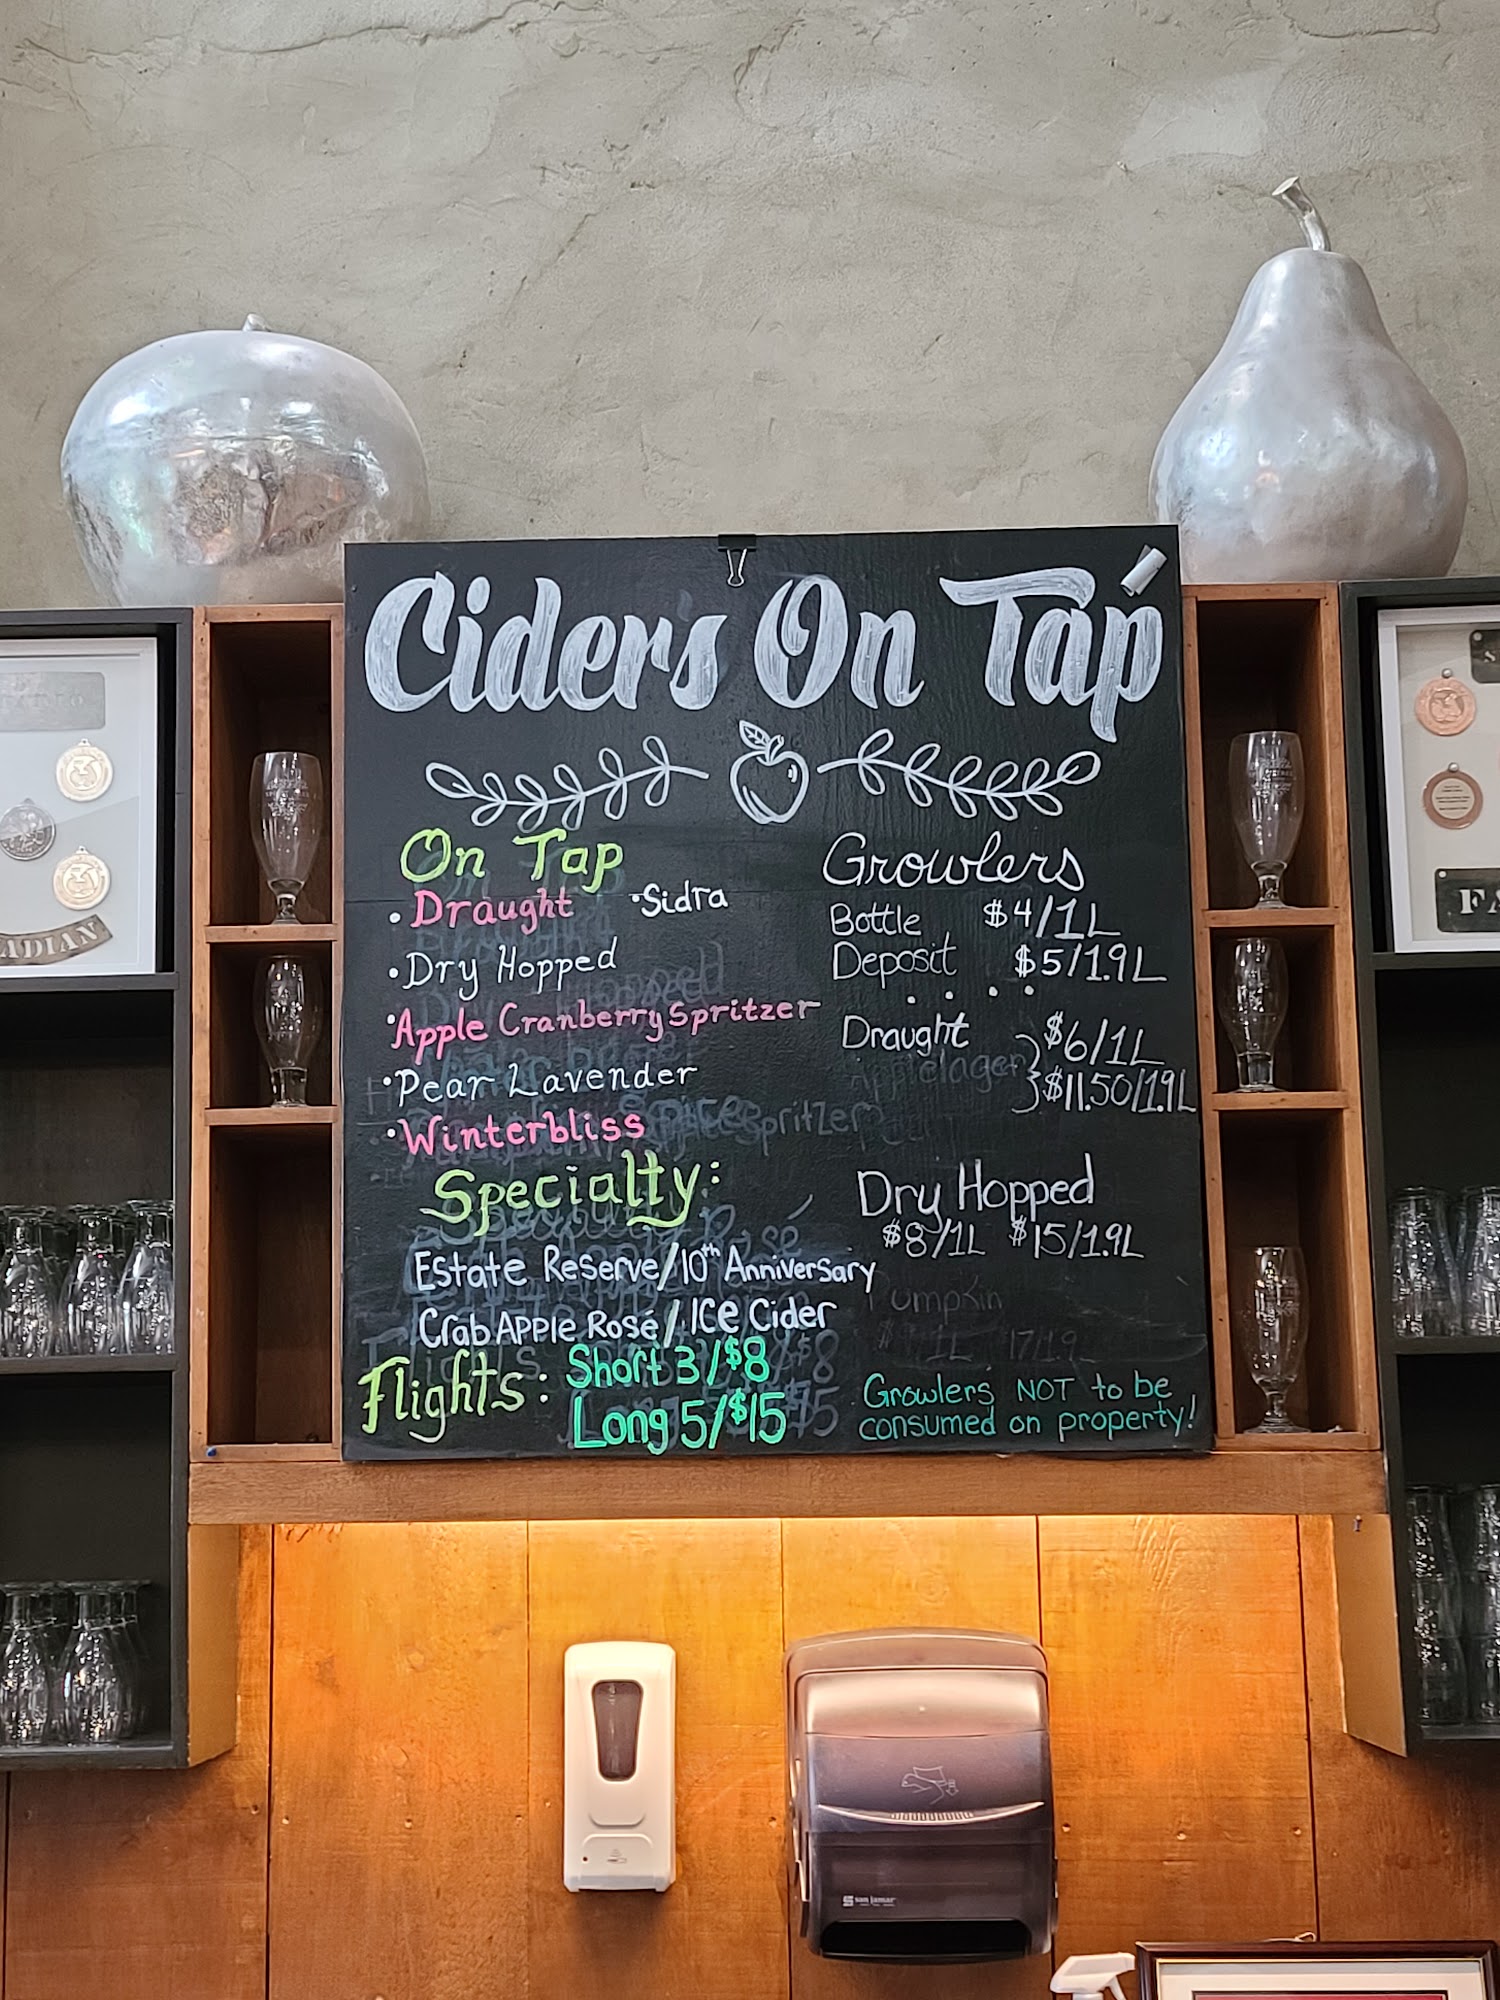 Cider's On Tap
On Tap
• Draught •Sidra
•Dry Hopped
•Apple Cranberry Spritzer
•Pear Lavender
•Winterbliss
Specialty:
Estate Reserve/10th Anniversary
Crab Apple Rosé/Ice Cider
Flights: Short 3/$8
Long 5/$15
Growlers
Bottle $4/1L
Deposit $5/1.9L
Draught $6/1L
Applelager $11.50/1.9L
Dry Hopped
$8/1L $15/1.9L
Pumpkin
Growlers NOT to be
consumed on property!
san jamar